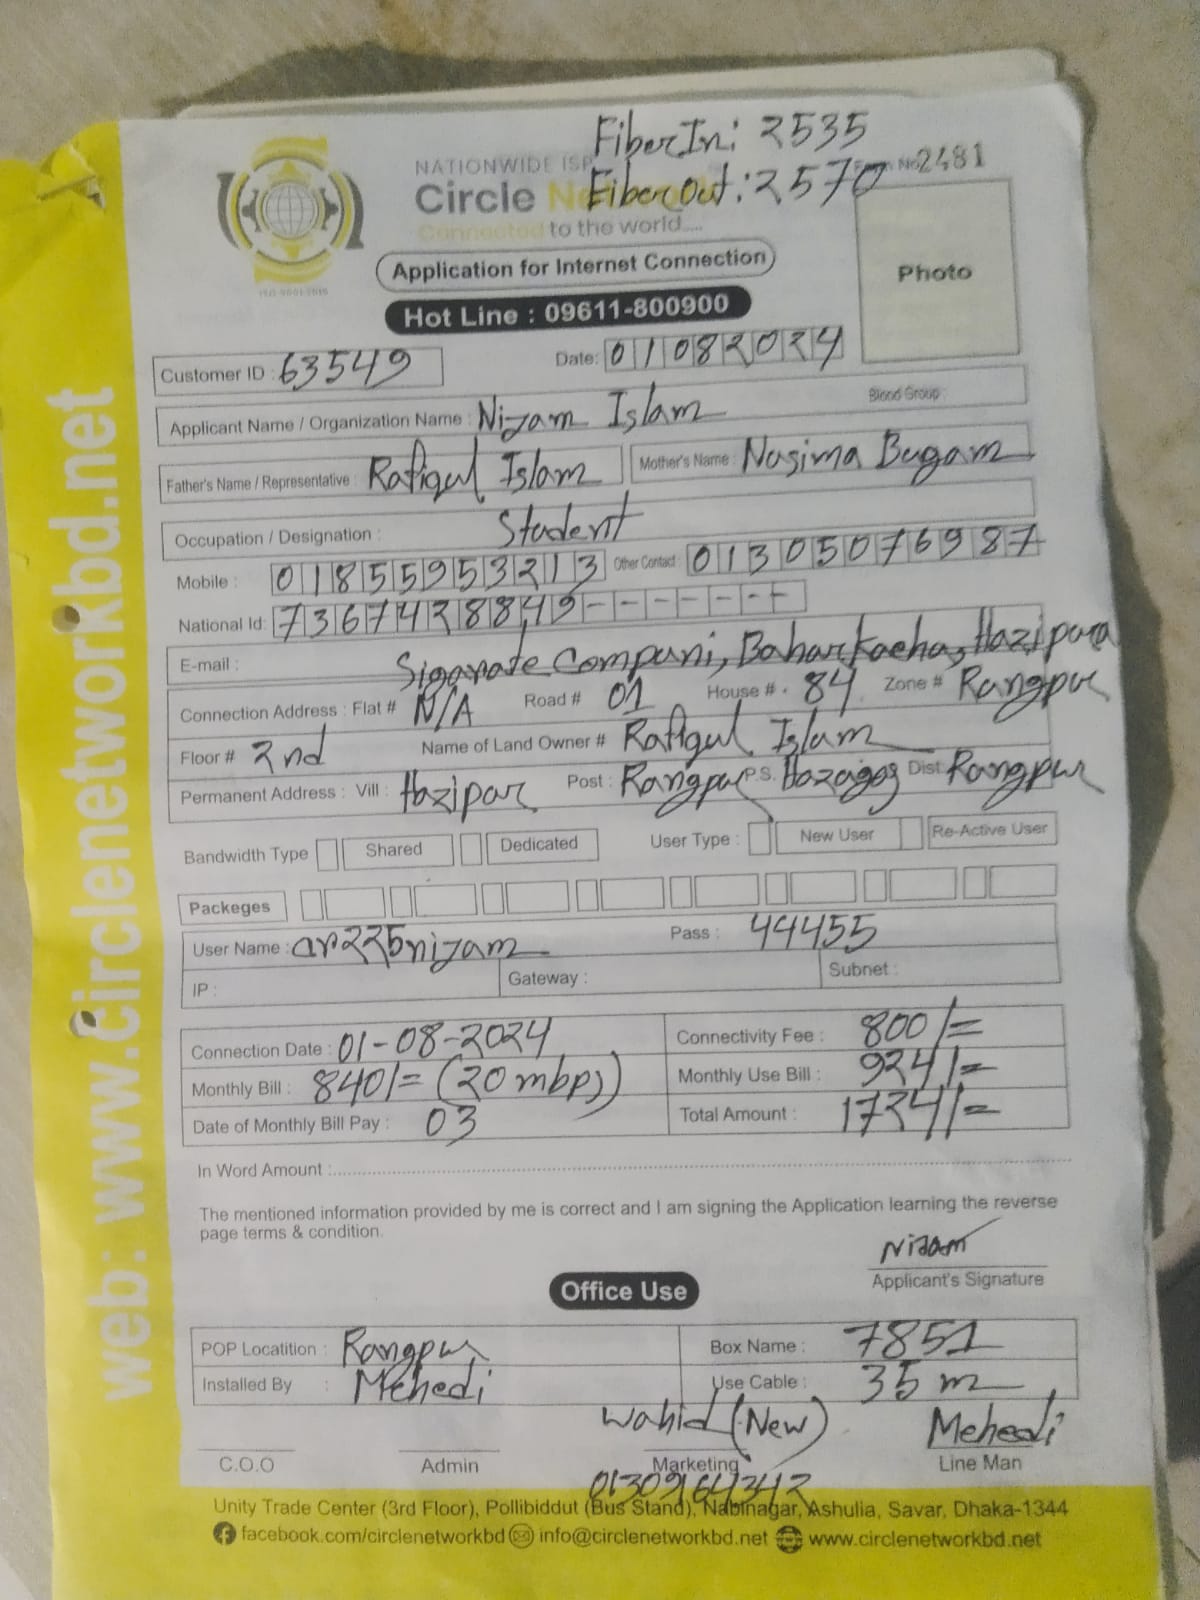 Fiber In: 2535
NATIONWIDE ISP
Fiber out: 2570
No 2481
Circle
Connected to the world....
ISO 9001:2015
Application for Internet Connection
Photo
Hot Line : 09611-800900
Customer ID : 63549 Date: 01082024
Applicant Name / Organization Name : Nizam Islam Blood Group :
Father's Name / Representative : Rafiqul Islam Mother's Name : Nasima Bugam
Occupation / Designation : Student
Mobile : 01855953213 Other Contact : 01305076987
National Id: 7367428849-------
E-mail : Siganate Compani, Baharkacha, Hazipara
Connection Address : Flat # N/A Road # 01 House # 84 Zone # Rangpur
Floor # 2nd Name of Land Owner # Rafiqul Islam
Permanent Address : Vill : Hazipar Post : Rangpur P.S. Dist Rangpur
Bandwidth Type Shared Dedicated User Type : New User Re-Active User
Packeges
User Name : ar225nizam Pass : 44455
IP : Gateway : Subnet :
Connection Date : 01-08-2024 Connectivity Fee : 800/=
Monthly Bill : 840/= (20 mbps) Monthly Use Bill : 924/=
Date of Monthly Bill Pay : 03 Total Amount : 1724/=
In Word Amount :
The mentioned information provided by me is correct and I am signing the Application learning the reverse
page terms & condition.
Nizam
Applicant's Signature
Office Use
POP Locatition : Rangpur Box Name : 7851
Installed By : Mehedi Use Cable : 35 m
Wahid (New) Mehedi
C.O.O Admin Marketing Line Man
01309164342
Unity Trade Center (3rd Floor), Pollibiddut (Bus Stand), Nabinagar, Ashulia, Savar, Dhaka-1344
facebook.com/circlenetworkbd info@circlenetworkbd.net www.circlenetworkbd.net
web: www.circlenetworkbd.net